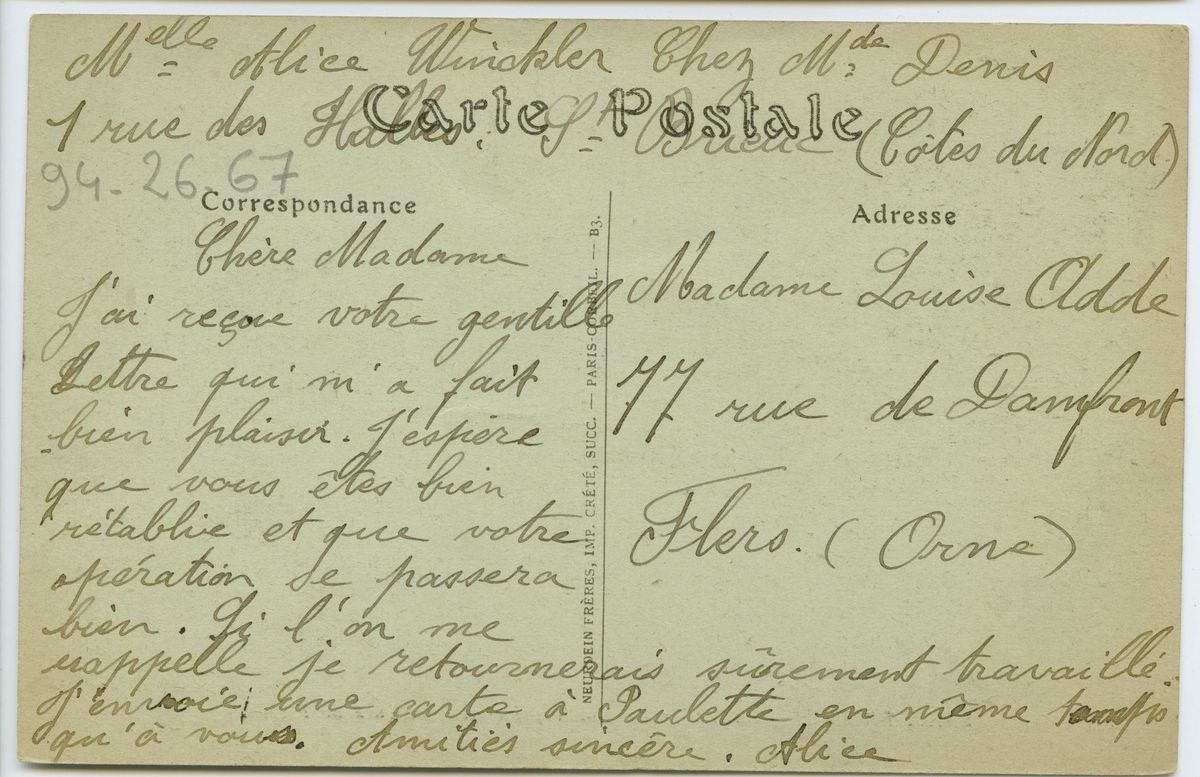 Melle Alice Winckler Chez Mde Denis
Carte Postale
1 rue des Halles. St Brieuc (Côtes du Nord)
94-26-67
Correspondance
Chère Madame
J'ai reçue votre gentille
Lettre qui m'a fait
bien plaisir. J'espère
que vous êtes bien
rétablie et que votre
opération se passera
bien. Si l'on me
rappelle je retournerais sûrement travaillé.
J'envoie une carte à Paulette en même temps
qu'à vous. Amitiés sincère. Alice
NEURDEIN FRÈRES, IMP. CRÉTÉ, SUCC. — PARIS-CORBEIL. — B3.
Adresse
Madame Louise Adde
77 rue de Damfront
Flers. (Orne)